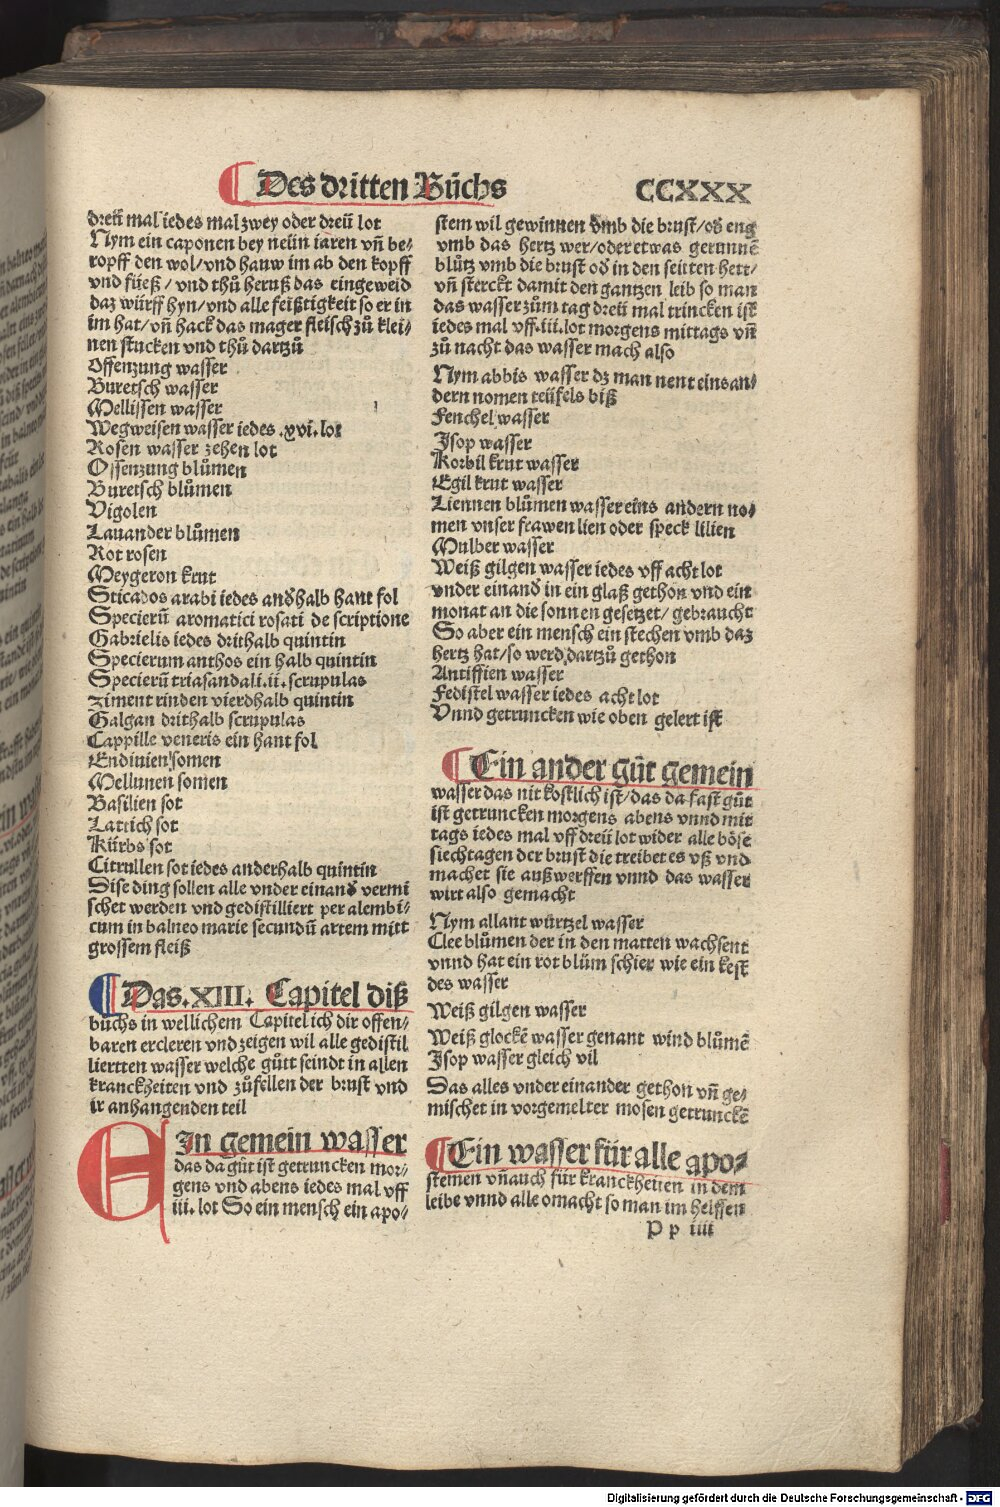 Des dritten Bůchs
CCXXX
dreü mal iedes mal zwey oder dreü lot
Nym ein caponen bey neün iaren vñ be-
ropff den wol/vnd hauw im ab den kopff
vnd füeß/ vnd thů heruß das eingeweid
daz würff hyn/vnd alle feißtigkeit so er in
im hat/vñ hack das mager fleisch zů klei-
nen stucken vnd thů dartzů
Offenzung wasser
Buretsch wasser
Mellissen wasser
Wegweisen wasser iedes .xvi. lot
Rosen wasser zehen lot
Ossenzung blůmen
Buretsch blůmen
Vigolen
Lauander blůmen
Rot rosen
Meygeron krut
Sticados arabi iedes anďhalb hant fol
Specierū aromatici rosati de scriptione
Gabrielis iedes drithalb quintin
Specierum anthos ein halb quintin
Specierū triasandali.ii.scrupulas
Ziment rinden vierdhalb quintin
Galgan drithalb scrupulas
Cappille veneris ein hant fol
Endiuien somen
Mellunen somen
Basilien sot
Lattich sot
Kürbs sot
Citrullen sot iedes anderhalb quintin
Dise ding sollen alle vnder einanď vermi
schet werden vnd gedistilliert per alembi-
cum in balneo marie secundū artem mitt
grossem fleiß
Das.XIII. Capitel diß
bůchs in wellichem Capitel ich dir offen-
baren ercleren vnd zeigen wil alle gedistil
liertten wasser welche gůtt seindt in allen
kranckheiten vnd zůfellen der brust vnd
ir anhangenden teil
EIn gemein wasser
das da gůt ist getruncken mor-
gens vnd abens iedes mal vff
iii. lot So ein mensch ein apo-
stem wil gewinnen vmb die brust/oď eng
vmb das hertz wer/oder etwas gerunnē
blůtz vmb die brust oď in den seitten hett/
vñ sterckt damit den gantzen leib so man
das wasser zům tag dreü mal trincken ist
iedes mal vff.iii.lot morgens mittags vñ
zů nacht das wasser mach also
Nym abbis wasser dz man nent eins an-
dern nomen teüfels biß
Fenchel wasser
Isop wasser
Korbil krut wasser
Egil krut wasser
Liennen blůmen wasser eins andern no-
men vnser frawen lien oder speck lilien
Mulber wasser
Weiß gilgen wasser iedes vff acht lot
vnder einanď in ein glaß gethon vnd ein
monat an die sonnen gesetzet/gebraucht
So aber ein mensch ein stechen vmb daz
hertz hat/so werd dartzů gethon
Antiffien wasser
Fedistel wasser iedes acht lot
Vnnd getruncken wie oben gelert ist
Ein ander gůt gemein
wasser das nit kostlich ist/das da fast gůt
ist getruncken morgens abens vnnd mit
tags iedes mal vff dreü lot wider alle böse
siechtagen der brust die treibet es vß vnd
machet sie auß werffen vnnd das wasser
wirt also gemacht
Nym allant würtzel wasser
Clee blůmen der in den matten wachsent
vnnd hat ein rot blům schier wie ein kest
des wasser
Weiß gilgen wasser
Weiß glockē wasser genant wind blůmē
Isop wasser gleich vil
Das alles vnder einander gethon vñ ge-
mischet in vorgemelter mosen getrunckē
Ein wasser für alle apo-
stemen vñ auch für kranckheiten in dem
leibe vnnd alle omacht so man im helffen
P p iiii
Digitalisierung gefördert durch die Deutsche Forschungsgemeinschaft - DFG